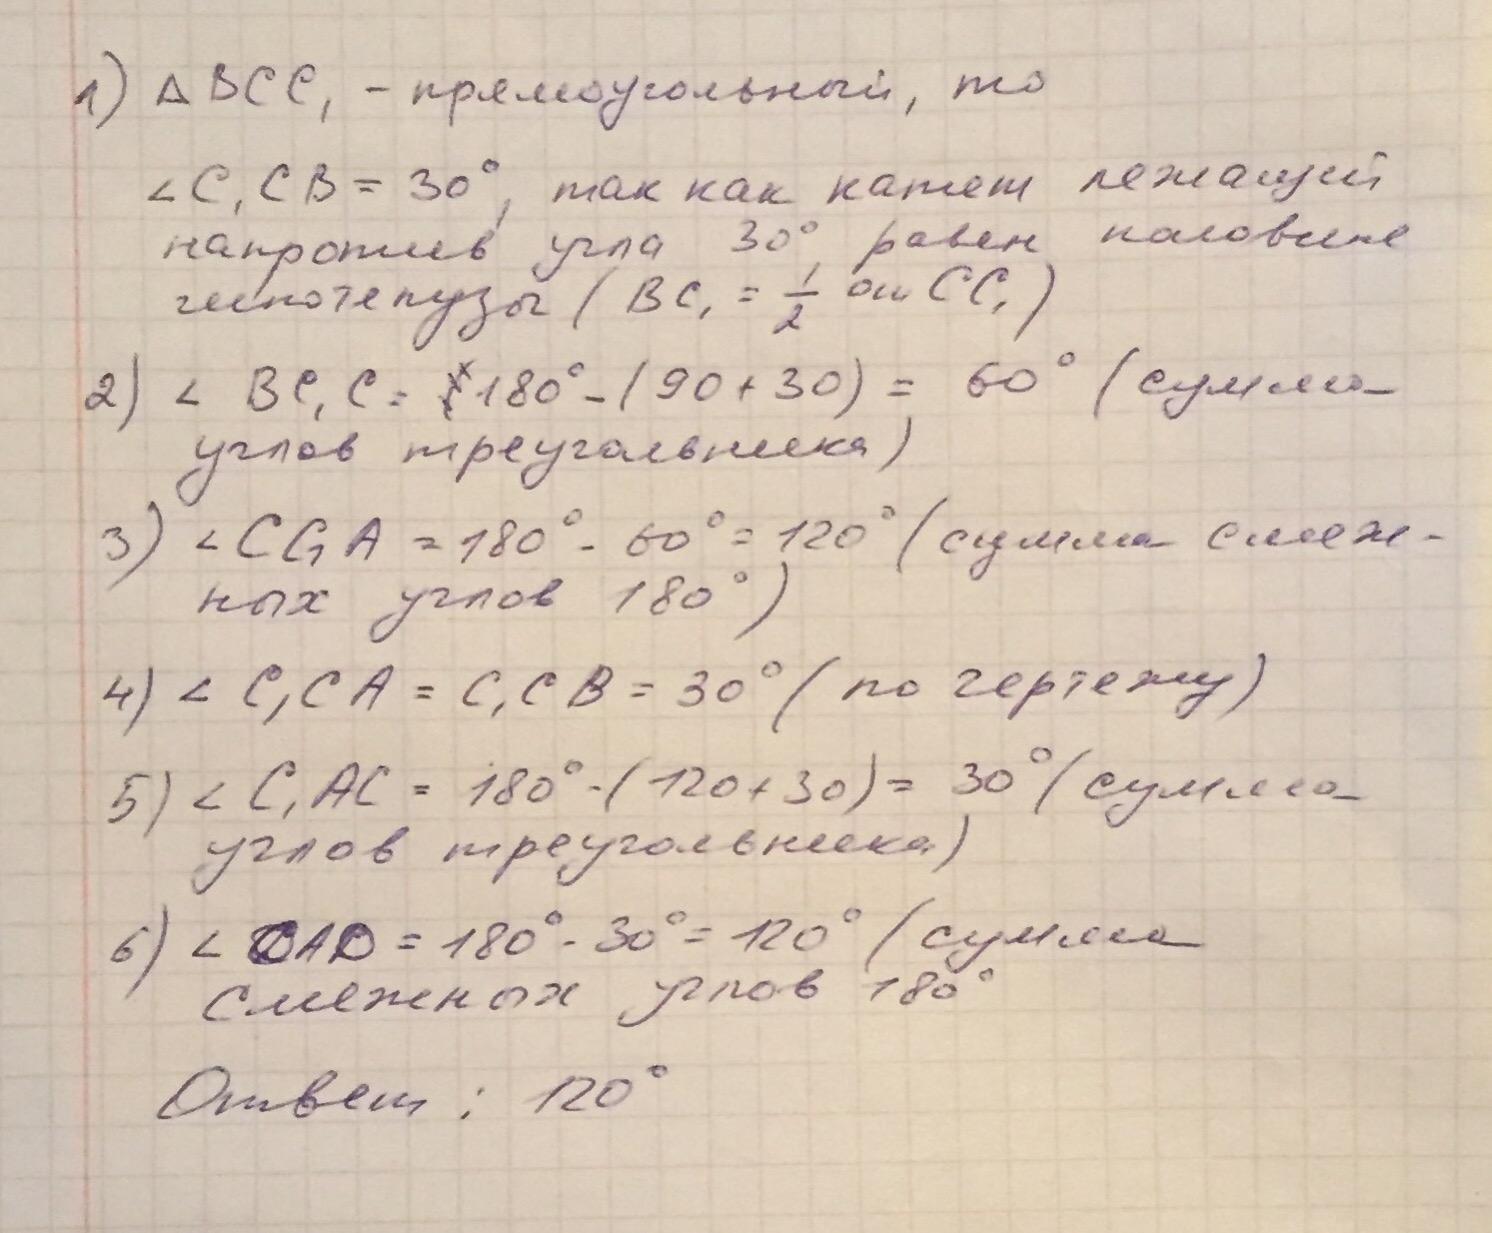 1) Δ BCC₁ - прямоугольный, то
∠C₁CB = 30°, так как катет лежащий
напротив угла 30°, равен половине
гипотенузы ( BC₁ = 1/2 от CC₁ )
2) ∠ BC₁C = 180° - (90 + 30) = 60° (сумма
углов треугольника)
3) ∠CC₁A = 180° - 60° = 120° (сумма смеж-
ных углов 180°)
4) ∠ C₁CA = C₁CB = 30° ( по чертежу)
5) ∠ C₁AC = 180° - (120 + 30) = 30° (сумма
углов треугольника)
6) ∠ CAD = 180° - 30° = 120° (сумма
смежных углов 180°
Ответ : 120°